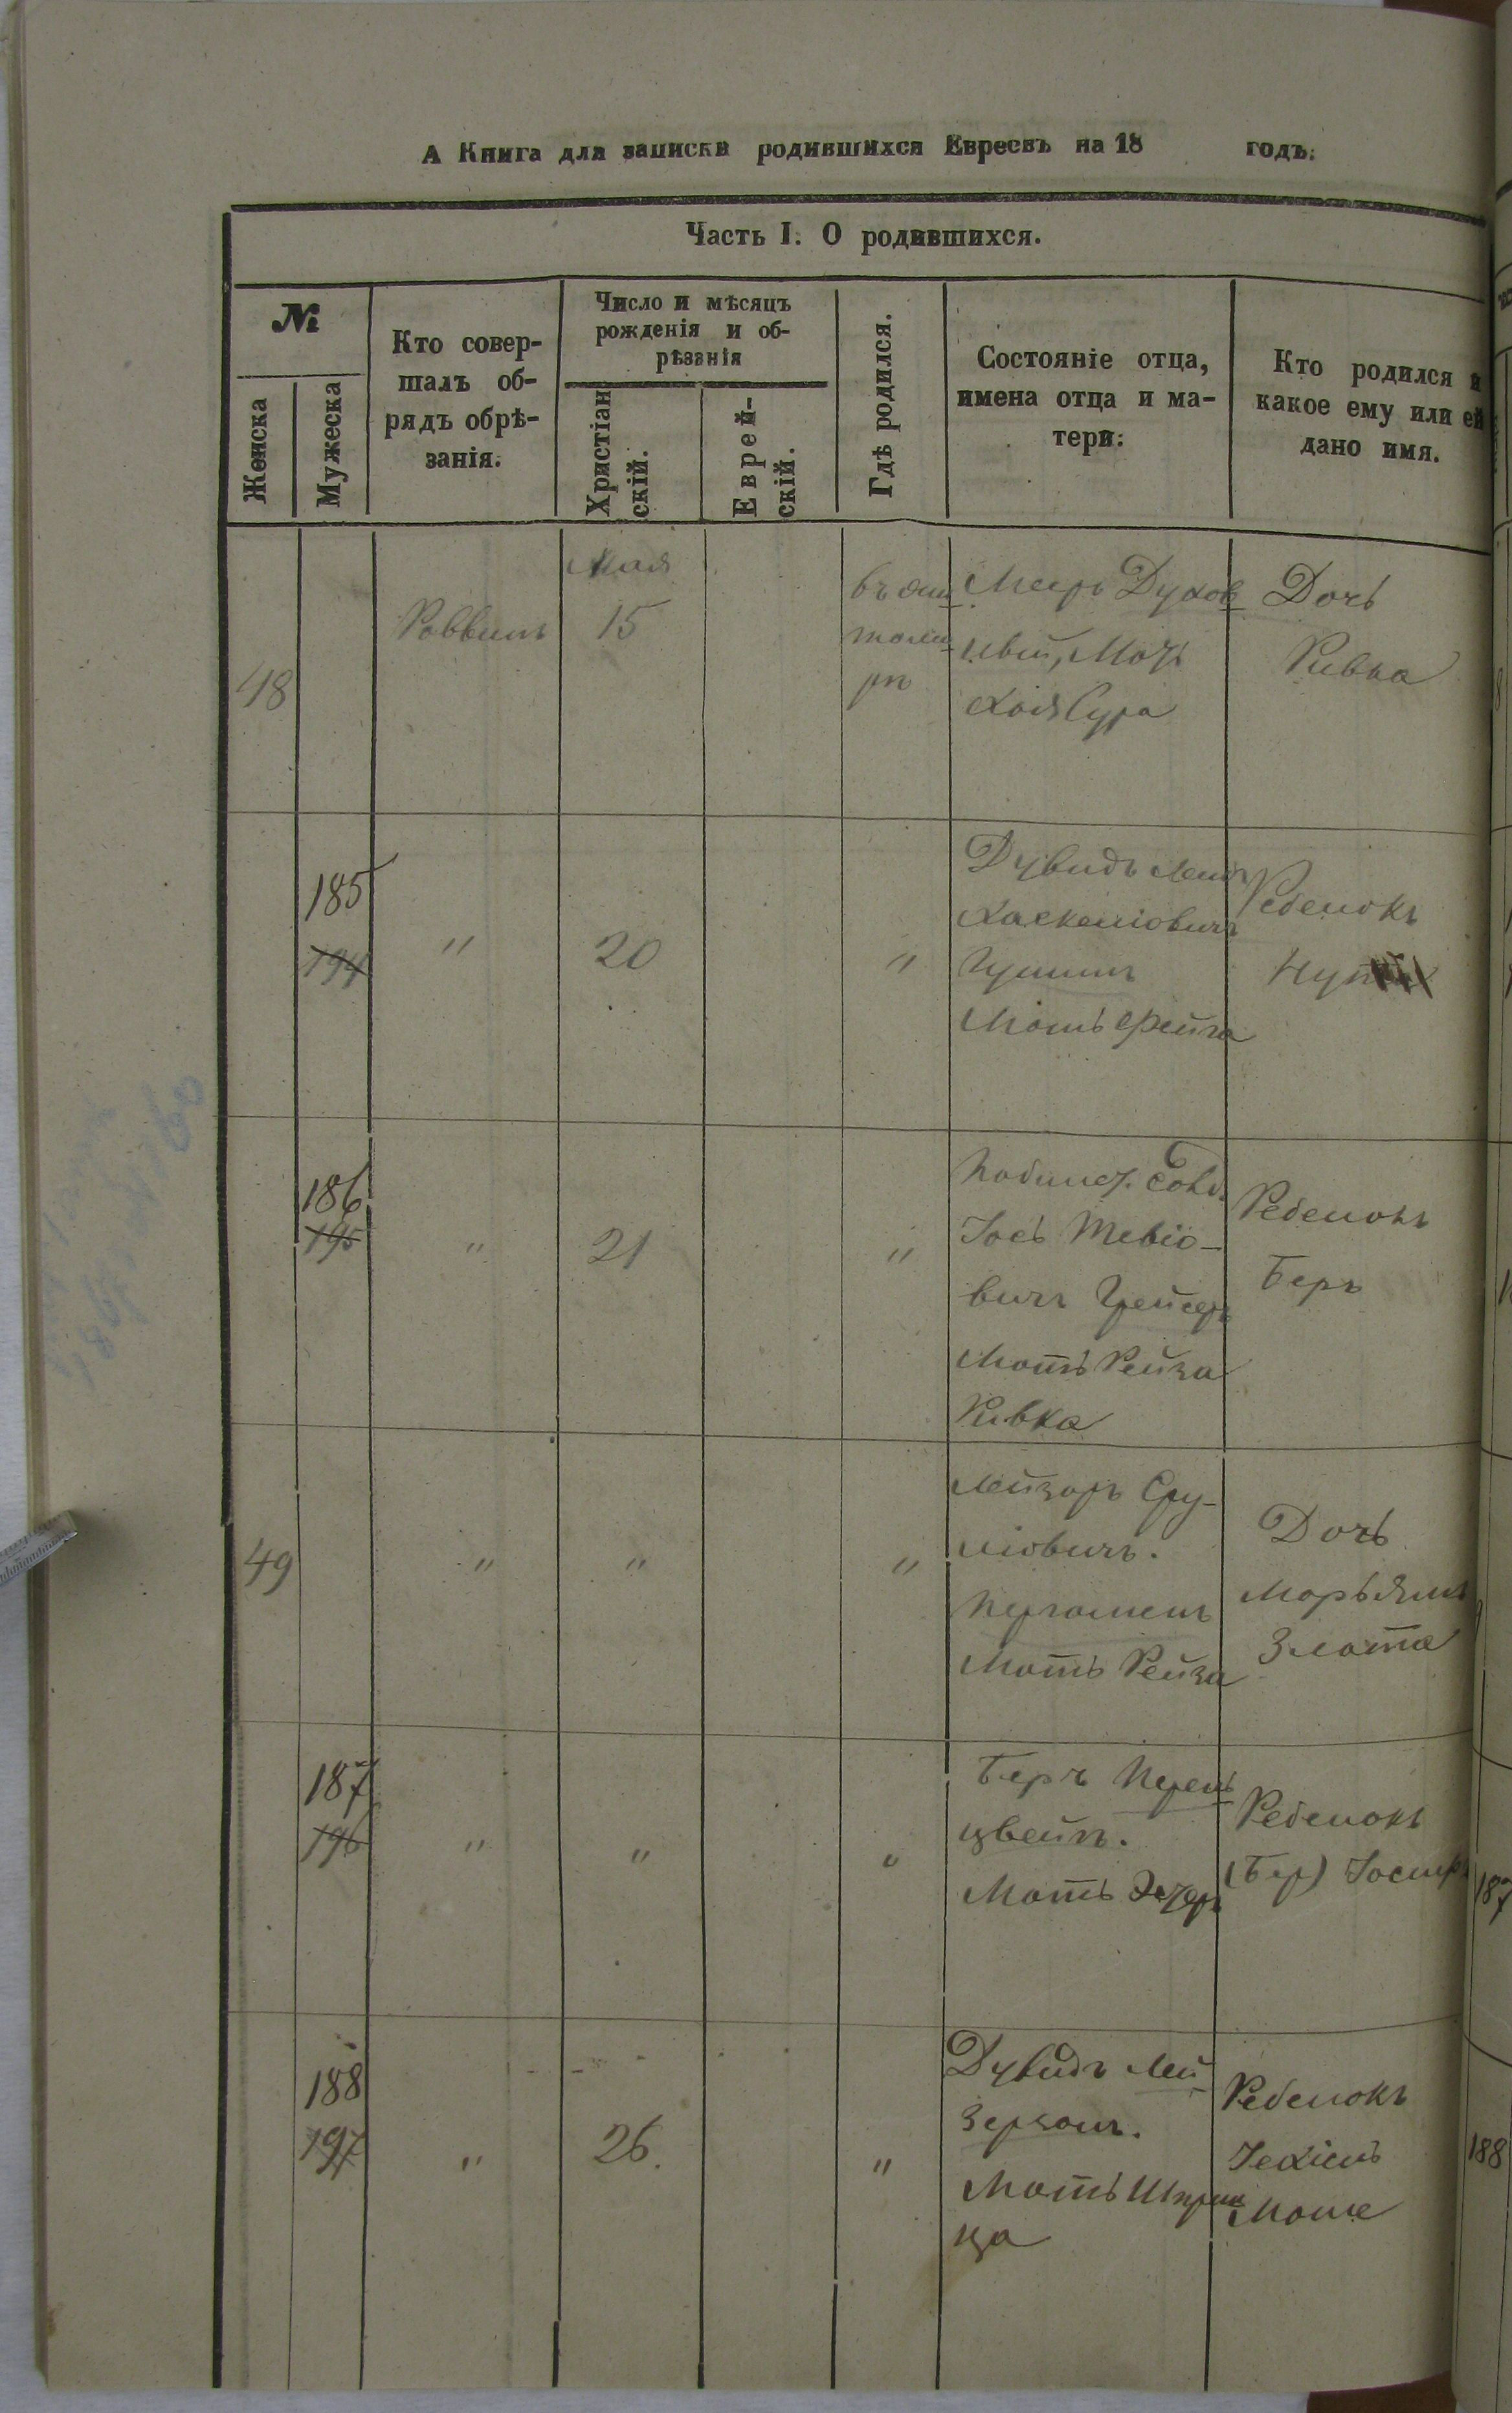 А Книга для записки родившихся Евреевъ на 18 годъ.
Часть I. О родившихся.
№
Женска
Мужеска
Кто совер-
шалъ об-
рядъ обрѣ-
занія.
Число и мѣсяцъ
рожденія и об-
рѣзанія
Христіан
скій.
Еврей-
скій.
Гдѣ родился.
Состояніе отца,
имена отца и ма-
тери:
Кто родился и
какое ему или ей
дано имя.
48
Раввинъ
Мая
15
въ
Меер Духов
ный, Мать
Хая Сура
Дочь
Ривка
185
194
"
20
"
Дувидъ Лейб
Хаскеліовичъ
Мать Фейга
Ребенокъ
186
195
"
21
"
Іось Тевіо-
вичъ Грейсеръ
Мать Рейза
Ривка
Ребенокъ
Беръ
49
"
"
"
Лейзоръ Сру-
ліовичъ.
Пергаменъ
Мать Рейза
Дочь
Марьямъ
Злата
187
196
"
"
"
Беръ Перель
цвейгъ.
Мать Эстеръ
Ребенокъ
(Бер) Іосифъ
187
188
197
"
26.
"
Дувидъ Лей
зерзонъ.
Мать Шприн
ца
Ребенокъ
Іехіель
Моше
188